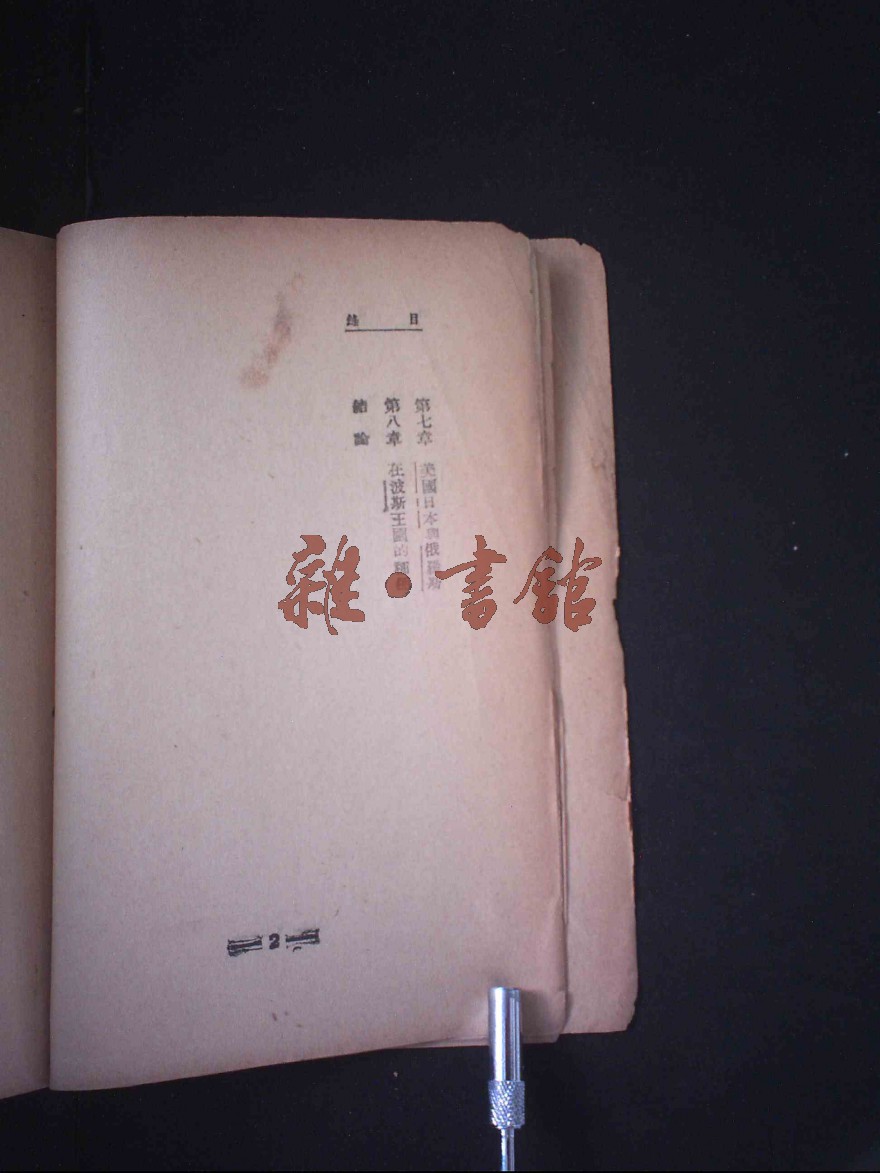 目錄
第七章 美國日本與俄羅斯
第八章 在波斯王國的
結論
雜·書館
2